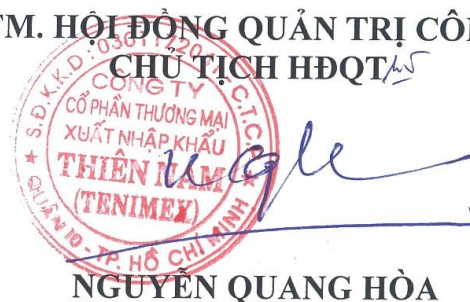 TM. HỘI ĐỒNG QUẢN TRỊ CÔN
CHỦ TỊCH HĐQT
S.Đ.K.K.D: 0301172041 C.T.C.P
CÔNG TY
CỔ PHẦN THƯƠNG MẠI
XUẤT NHẬP KHẨU
THIÊN NAM
(TENIMEX)
QUẬN 10 - TP. HỒ CHÍ MINH
NGUYỄN QUANG HÒA